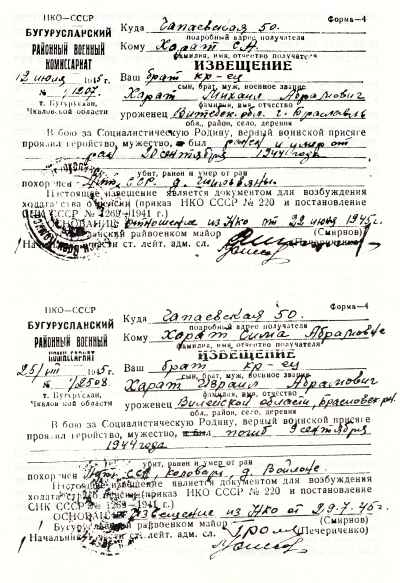 НКО—СССР
БУГУРУСЛАНСКИЙ
РАЙОННЫЙ ВОЕННЫЙ
КОМИССАРИАТ
12 июля 1945г.
№ 1/207.
т. Бугуруслан,
Чкаловской области
Форма—4
Куда Чапаевская 50.
подробный адрес получателя
Кому Харат С.А.
фамилия, имя, отчество получателя
ИЗВЕЩЕНИЕ
Ваш брат кр-ец
сын, брат, муж, военное звание
Харат Михаил Абрамович
фамилия, имя, отчество
уроженец Витебск. обл. г. Браславль
обл., район, село, деревня
В бою за Социалистическую Родину, верный воинской присяге
проявив геройство, мужество, был ранен и умер от
ран 20 сентября 1944 года
убит, ранен и умер от ран
похоронен Лит. ССР. д.
Настоящее извещение является документом для возбуждения
ходатайства о пенсии (приказ НКО СССР № 220 и постановление
СНК СССР № 1269—1941 г.)
ОСНОВАНИЕ: отношение из НКО от 22 июня 1945г.
райвоенком майор (Смирнов)
Начальник ст. лейт. адм. сл. (Печериченко)
НКО—СССР
БУГУРУСЛАНСКИЙ
РАЙОННЫЙ ВОЕННЫЙ
КОМИССАРИАТ
25/VIII 1945г.
№ 1/2508
т. Бугуруслан,
Чкаловской области
Форма—4
Куда Чапаевская 50.
подробный адрес получателя
Кому Харат Сима Абрамовне
фамилия, имя, отчество получателя
ИЗВЕЩЕНИЕ
Ваш брат кр-ец
сын, брат, муж, военное звание
Харат Израил Абрамович
фамилия, имя, отчество
уроженец Вилейской области, Браславск. р-н.
обл., район, село, деревня
В бою за Социалистическую Родину, верный воинской присяге
проявив геройство, мужество, был погиб 9 сентября
1944 года
убит, ранен и умер от ран
похоронен Лит. ССР, д. Войлоке
Настоящее извещение является документом для возбуждения
ходатайства о пенсии (приказ НКО СССР № 220 и постановление
СНК СССР № 1269—1941 г.)
ОСНОВАНИЕ: извещение из НКО от 29.7.45г.
Бугурусланский райвоенком майор (Смирнов)
Начальник ст. лейт. адм. сл. (Печериченко)